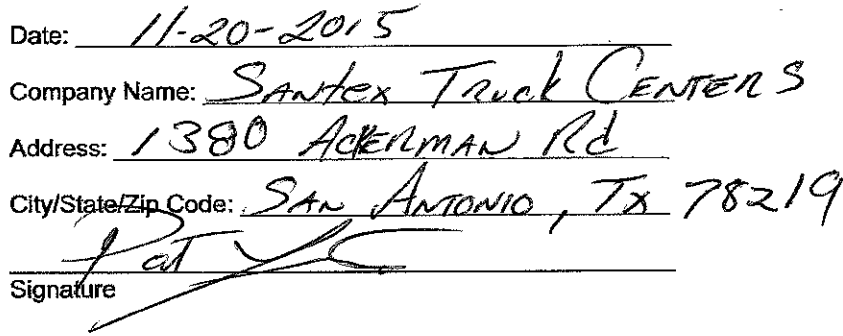 Date: 11-20-2015
Company Name: SANTEX TRUCK CENTERS
Address: 1380 ACKERMAN Rd
City/State/Zip Code: SAN ANTONIO, TX 78219
Pat
Signature